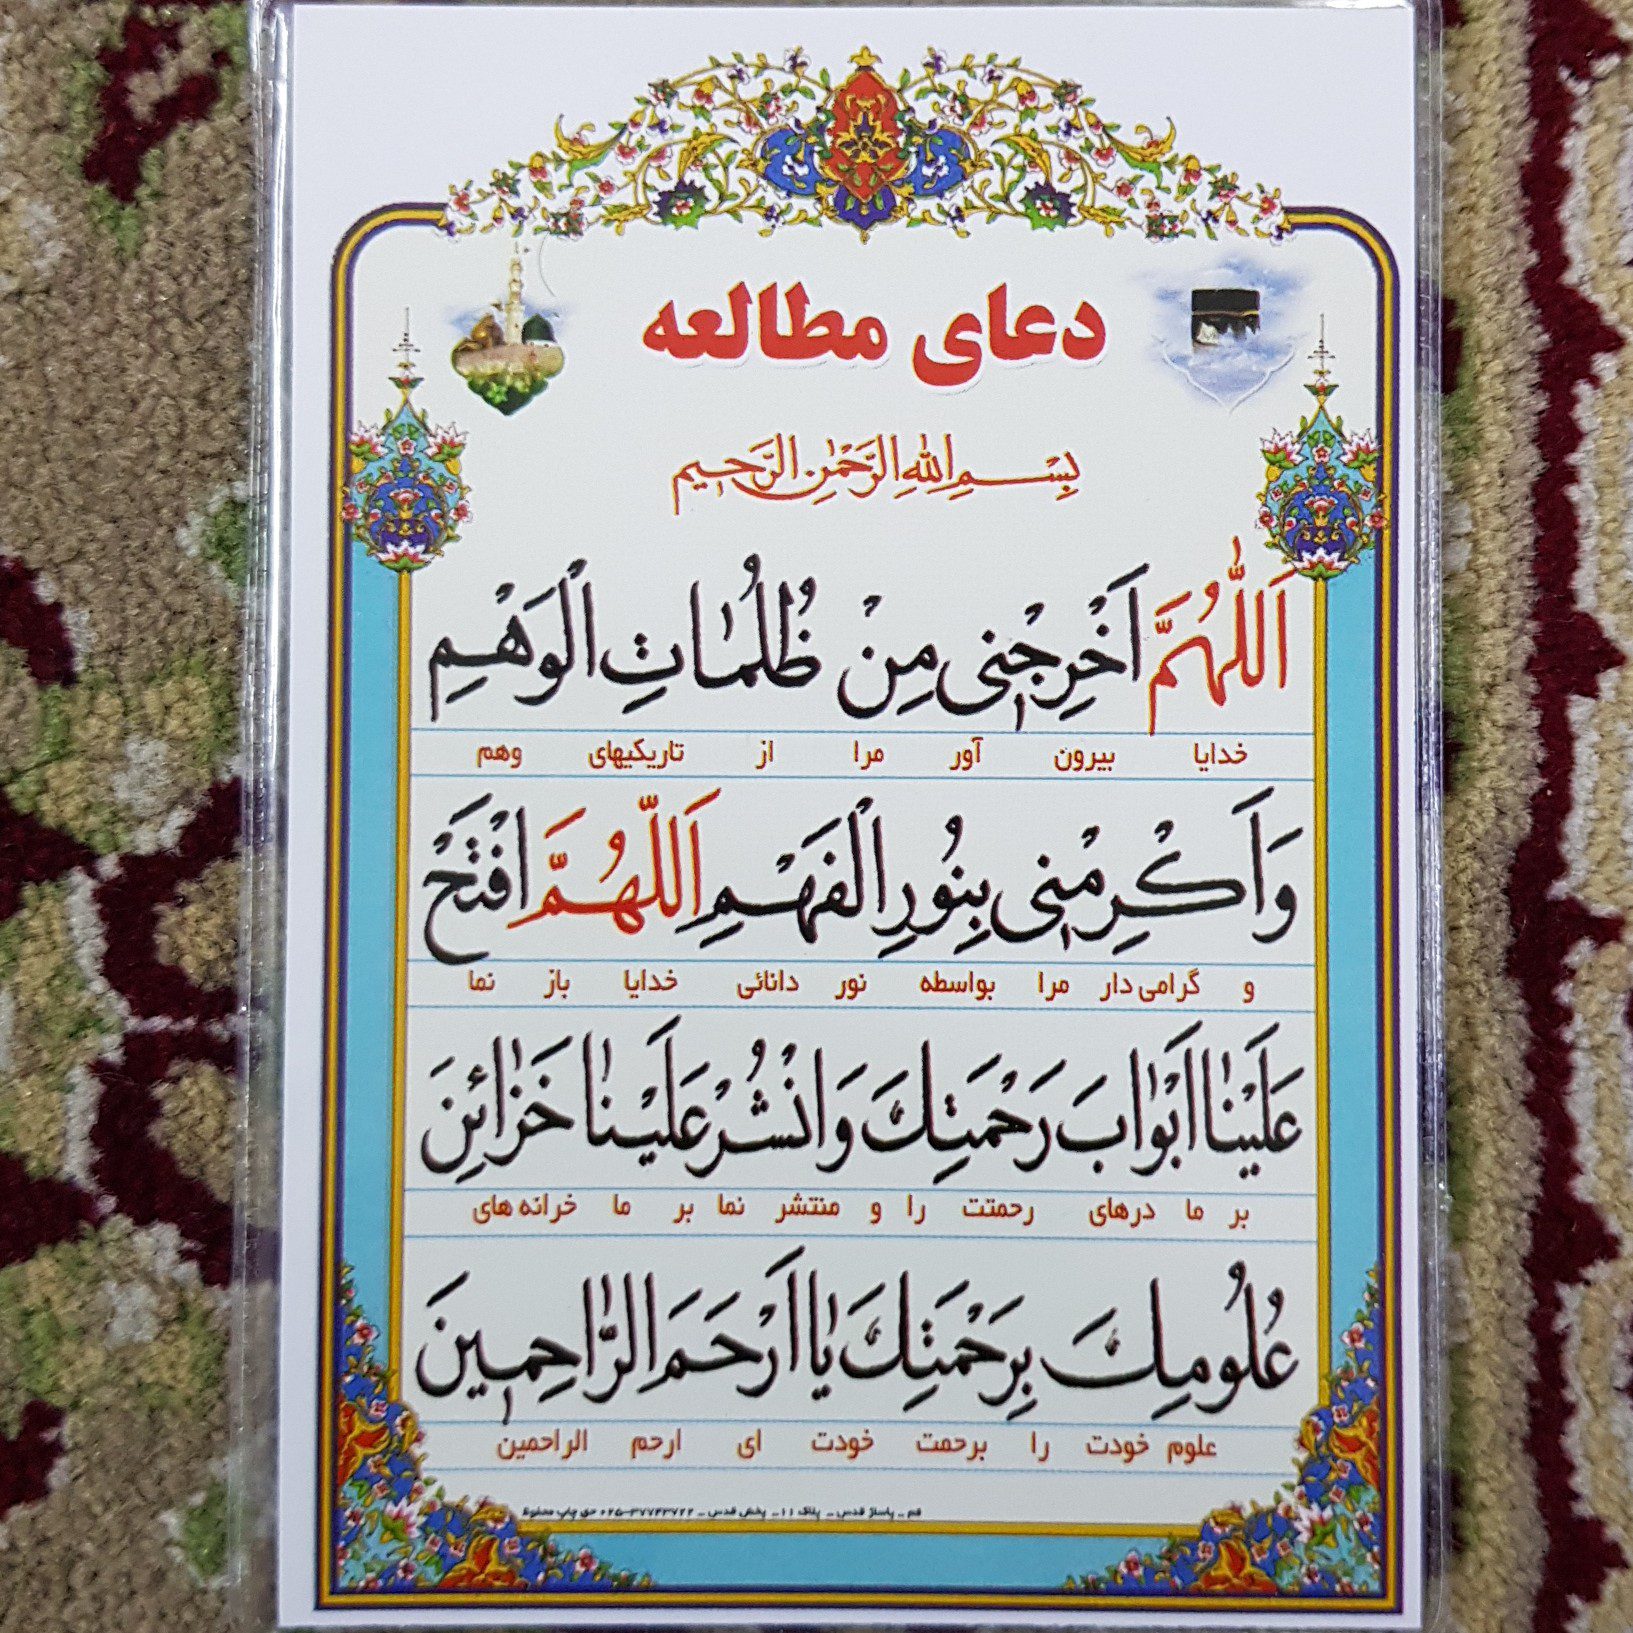 دعای مطالعه
بِسْمِ اللهِ الرَّحْمٰنِ الرَّحیمِ
اَللّٰهُمَّ اَخْرِجْنی مِنْ ظُلُمٰاتِ الْوَهْمِ
خدایا بیرون آور مرا از تاریکیهای وهم
وَاَکْرِمْنی بِنُورِ الْفَهْمِ اَللّٰهُمَّ افْتَحْ
و گرامی دار مرا بواسطه نور دانائی خدایا باز نما
عَلَیْنٰا اَبْوٰابَ رَحْمَتِكَ وَانْشُرْ عَلَیْنٰا خَزٰائِنَ
بر ما درهای رحمتت را و منتشر نما بر ما خزانه های
عُلُومِكَ بِرَحْمَتِكَ یٰا اَرْحَمَ الرّٰاحِمینَ
علوم خودت را برحمت خودت ای ارحم الراحمین
قم ـ پاساژ قدس ـ پلاک ۱۱ ـ پخش قدس ـ ۳۷۷۴۳۷۲۲-۰۲۵ حق چاپ محفوظ